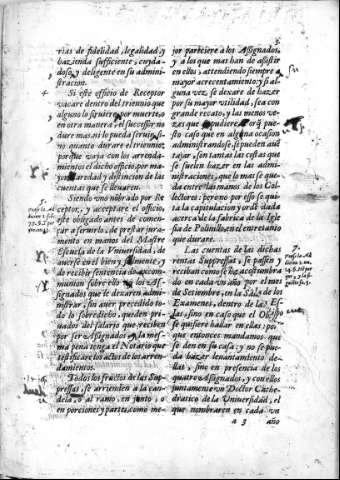 rias de fidelidad, legalidad, y
hazienda sufficiente, cuyda-
doso, y deligente en su admini-
stracion.
Si este officio de Receptor
vacare dentro del triennio que
alguno lo siruiere por muerte, o
en otra manera, el successor no
dure mas, ni lo pueda seruir, si-
no quanto durare el triennio,
porque vaya con los arrenda-
mientos el dicho officio, por ma-
yor claredad y distincion de las
cuentas que se lleuaren.
Siendo vno nõbrado por Re
ceptor, y acceptare el officio,
este obligado antes de comen-
çar a seruirlo, de prestar jura-
mento en manos del Mastre
Escuela de la Vniuersidad, de
auerse en el bien y fielmente, y
de recibir sentencia de excomu-
munion sobre ello y los As-
signados que se dexaren admi-
nistrar, sin auer precedido to-
do lo sobredicho, queden pri-
uados del salario que reciben
por ser Assignados y la mes-
ma pena tenga el Notario que
testificare los actos de los arren-
damientos.
Todos los fructos de las Sup-
pressas, se arrienden a la can-
dela, o al ramo, en junto, o
en porciones y partes, como me-
jor parteciere a los Assignados,
y a los que mas han de assistir
en ellos, attendiendo siempre a
mayor acrecentamiento: y si al-
guna vez, se dexare de hazer
por su mayor vtilidad, sea con
grande recato, y las menos ve-
zes que pudieren
sto caso que en alguna ocasion
administrandose, se pueden auẽ
tajar, son tantas las costas que
se suelen hazer en las admi-
nistraciones, que lo mas se que-
da entre las manos de los Col-
lectores: pero no por esso se qui-
ta la capitulacion y ordẽ dada
acerca de la fabrica de la Igle
sia de Polinillo, en el entretanto
que durare.
Las cuentas de las dichas
rentas Suppressas, se passen y
reciban como se ha acostumbra
do en cada vn año por el mes
de Setiembre, en la Sala de los
Examenes, dentro de las Es-
las, sino en caso que el Obispo
se quisiere hallar en ellas: por
que entonces mandamos que
se den en su casa: y no se pue-
da hazer leuantamiento de-
llas, sino en presencia de los
quatro Assignados, y con ellos
juntamente vn Doctor Cathe-
dratico de la Vniuersidad, el
que nombraren en cada vn
a 3 año